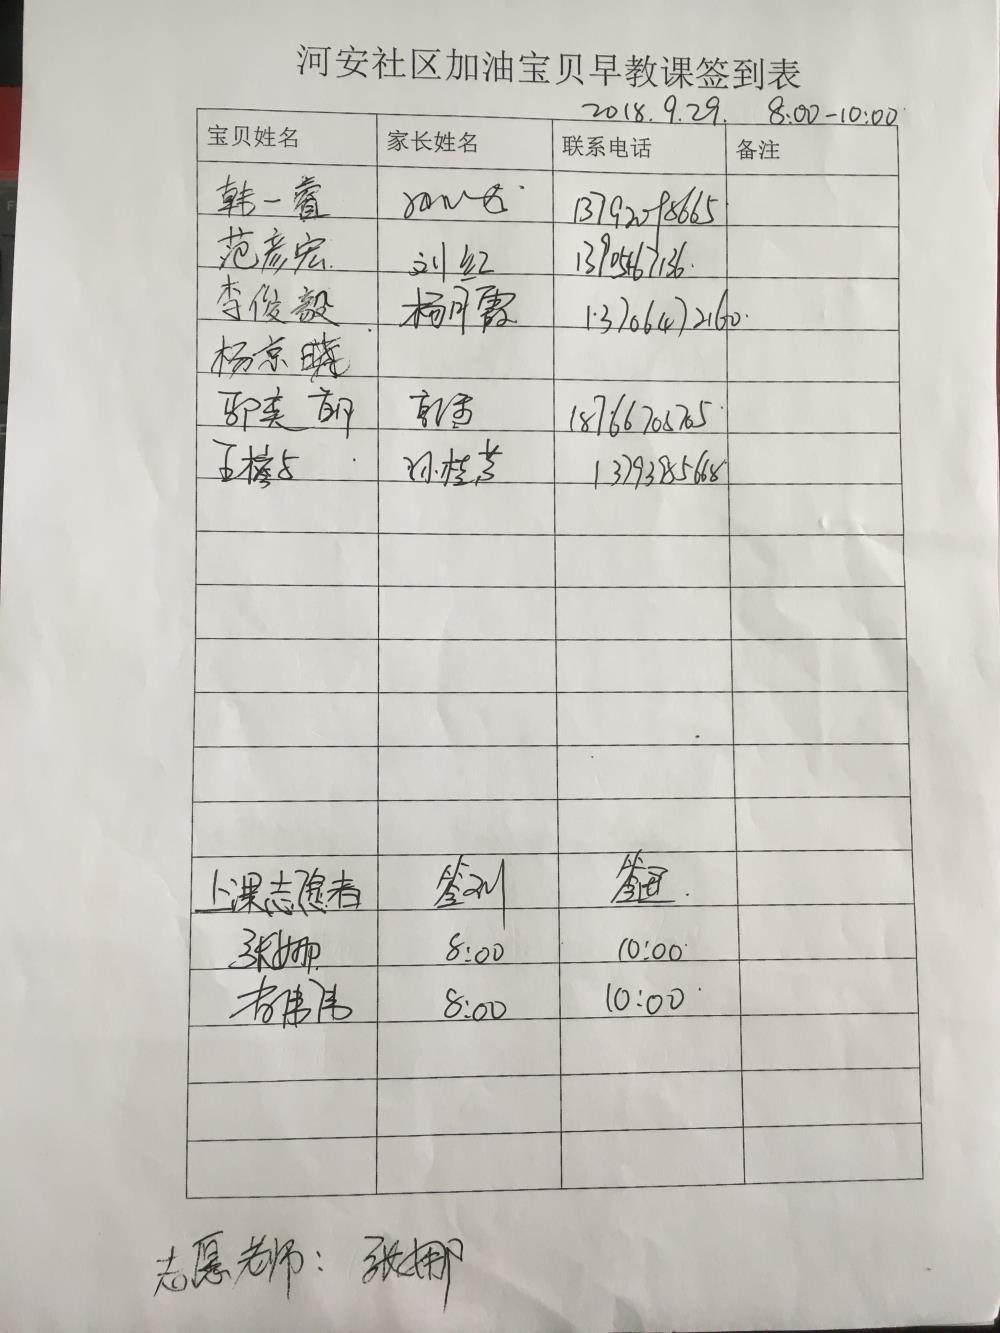 河安社区加油宝贝早教课签到表
2018.9.29. 8:00-10:00
宝贝姓名 家长姓名 联系电话 备注
韩一睿 13792098665
范彦宏 刘红 13905467136
李俊毅 杨月霞 13706472160
杨京晓
郭奕 18766705705
王 孙桂芳 13793985668
上课志愿者 签到 签退
张娜 8:00 10:00
李伟伟 8:00 10:00
志愿老师：张娜